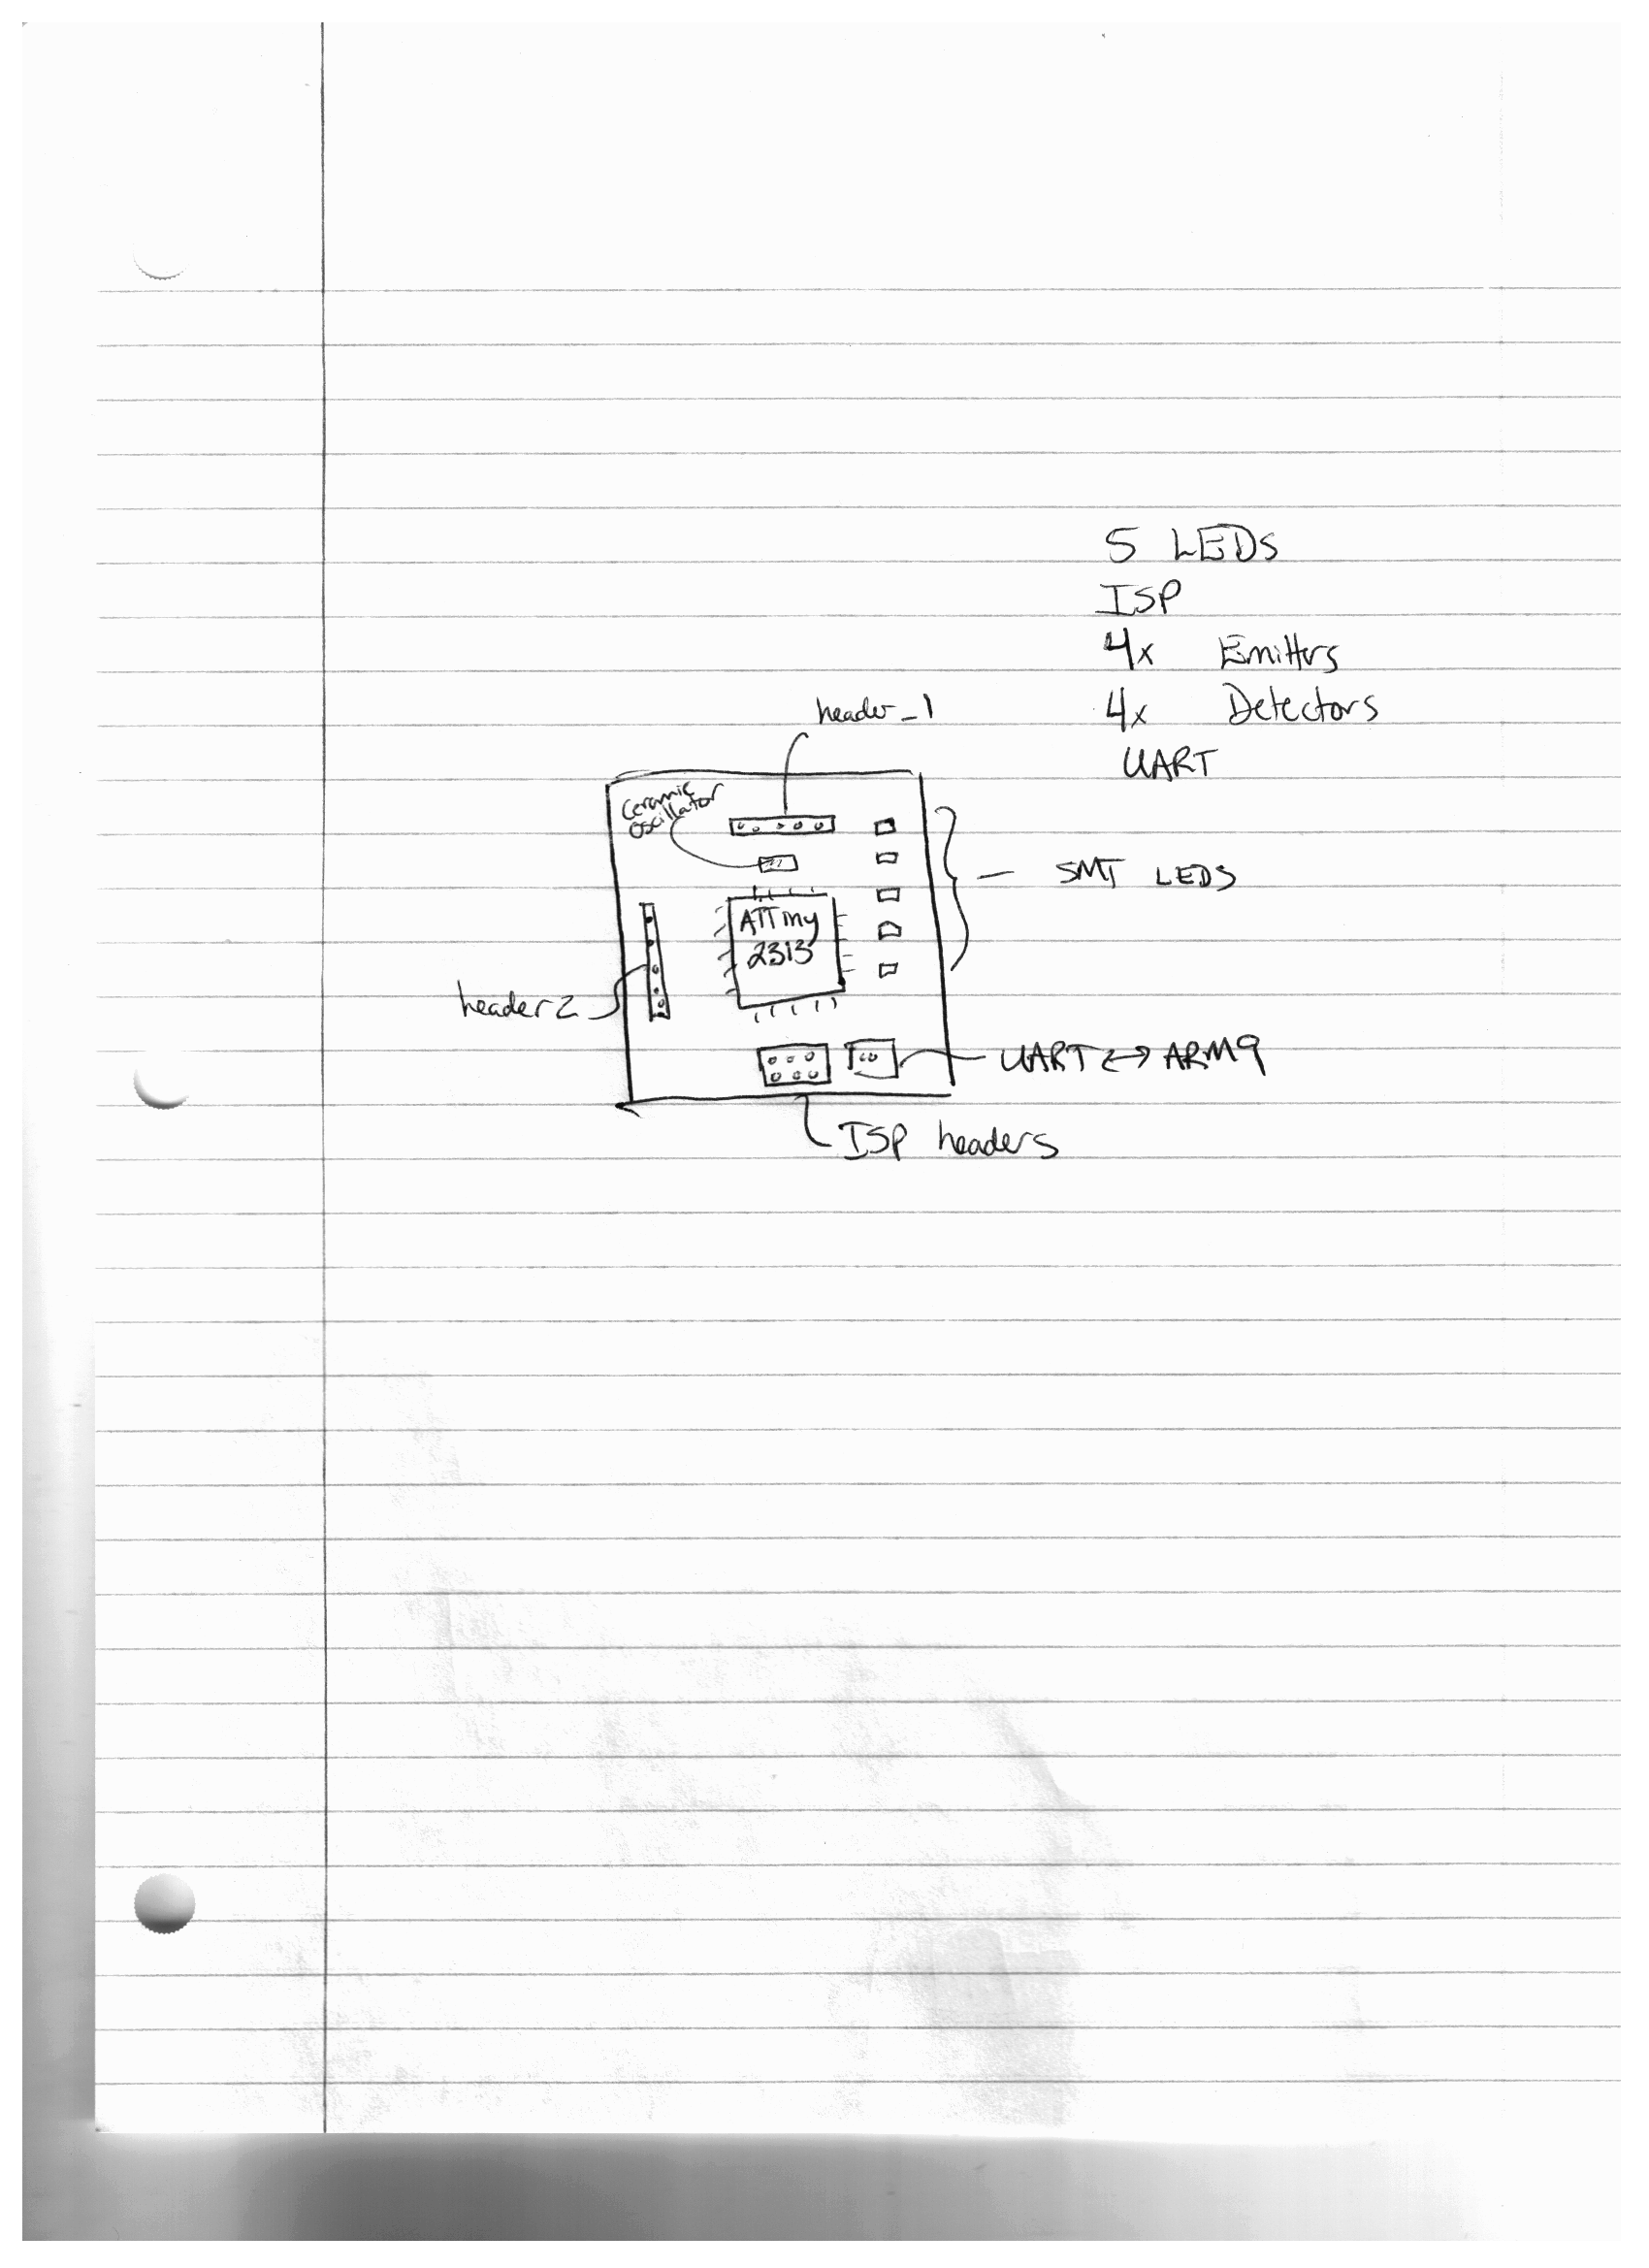 5 LEDs
ISP
4x Emitters
4x Detectors
UART
header_1
Ceramic
Oscillator
SMT LEDS
ATTiny
2313
header2
UART <-> ARM9
ISP headers